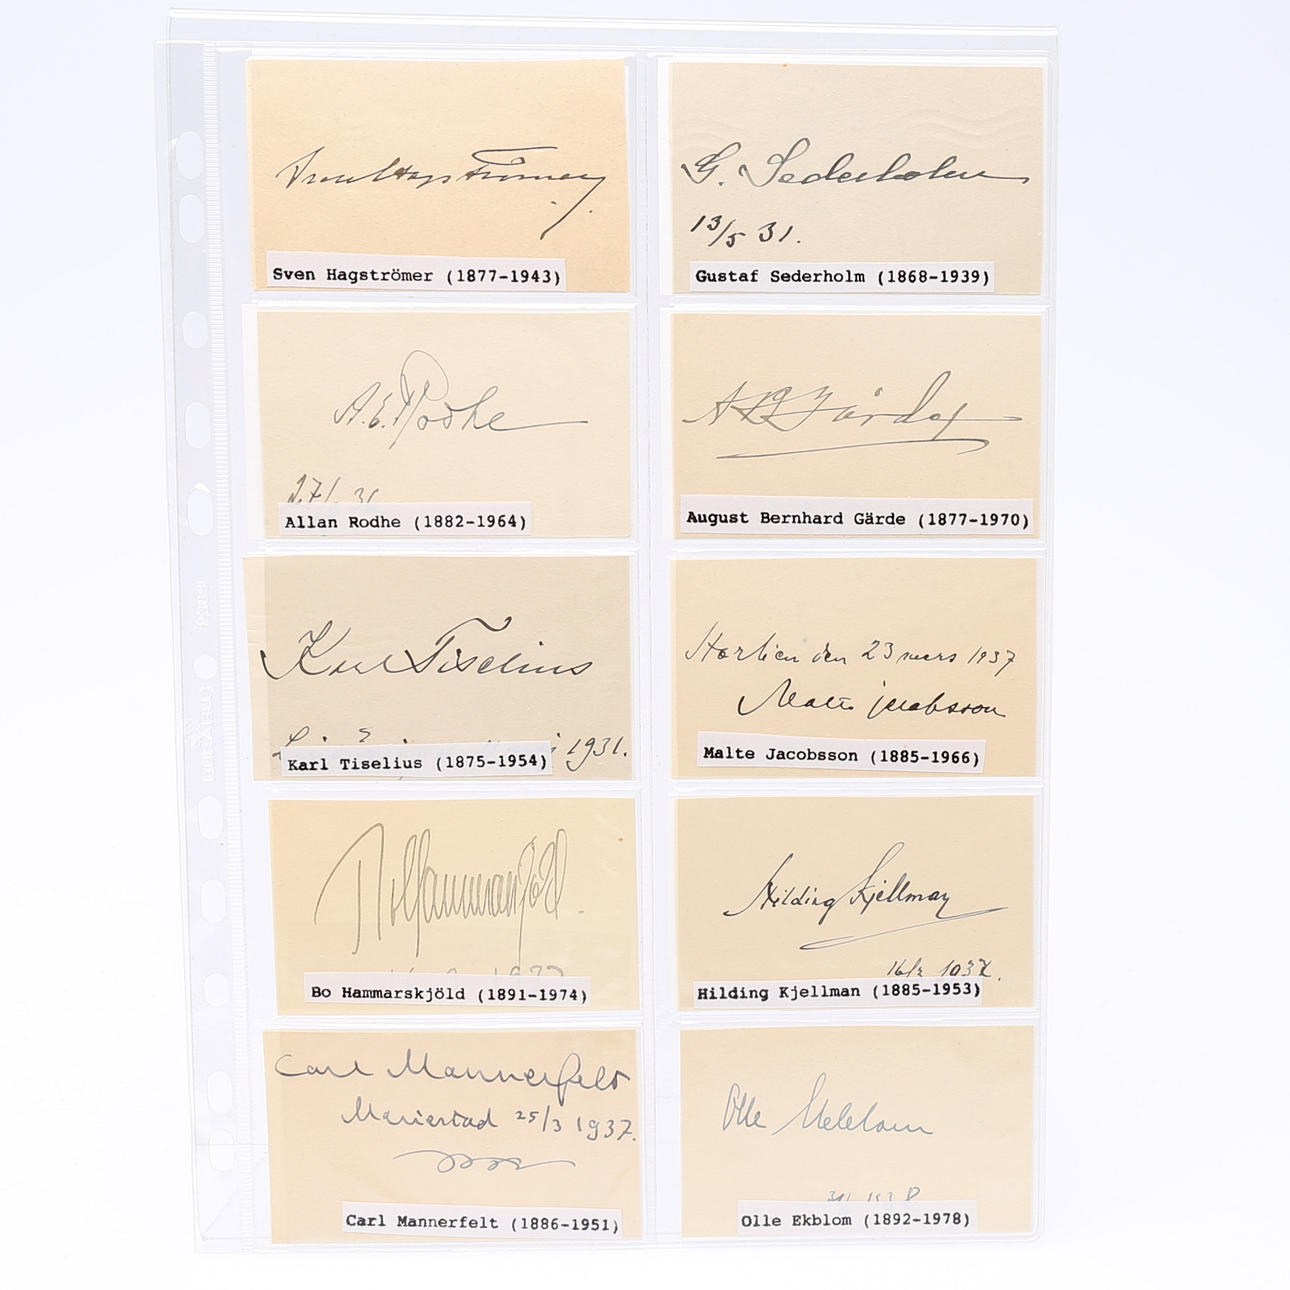 Sven Hagströmer
Sven Hagströmer (1877-1943)
G. Sederholm
13/5 31.
Gustaf Sederholm (1868-1939)
A.E. Rodhe
Allan Rodhe (1882-1964)
A B Gärde
August Bernhard Gärde (1877-1970)
Karl Tiselius
1931.
Karl Tiselius (1875-1954)
den 23 mars 1937
Malte Jacobsson
Malte Jacobsson (1885-1966)
Bo Hammarskjöld
Bo Hammarskjöld (1891-1974)
Hilding Kjellman
Hilding Kjellman (1885-1953)
Carl Mannerfelt
Mariestad 25/3 1937.
Carl Mannerfelt (1886-1951)
Olle Ekblom
Olle Ekblom (1892-1978)